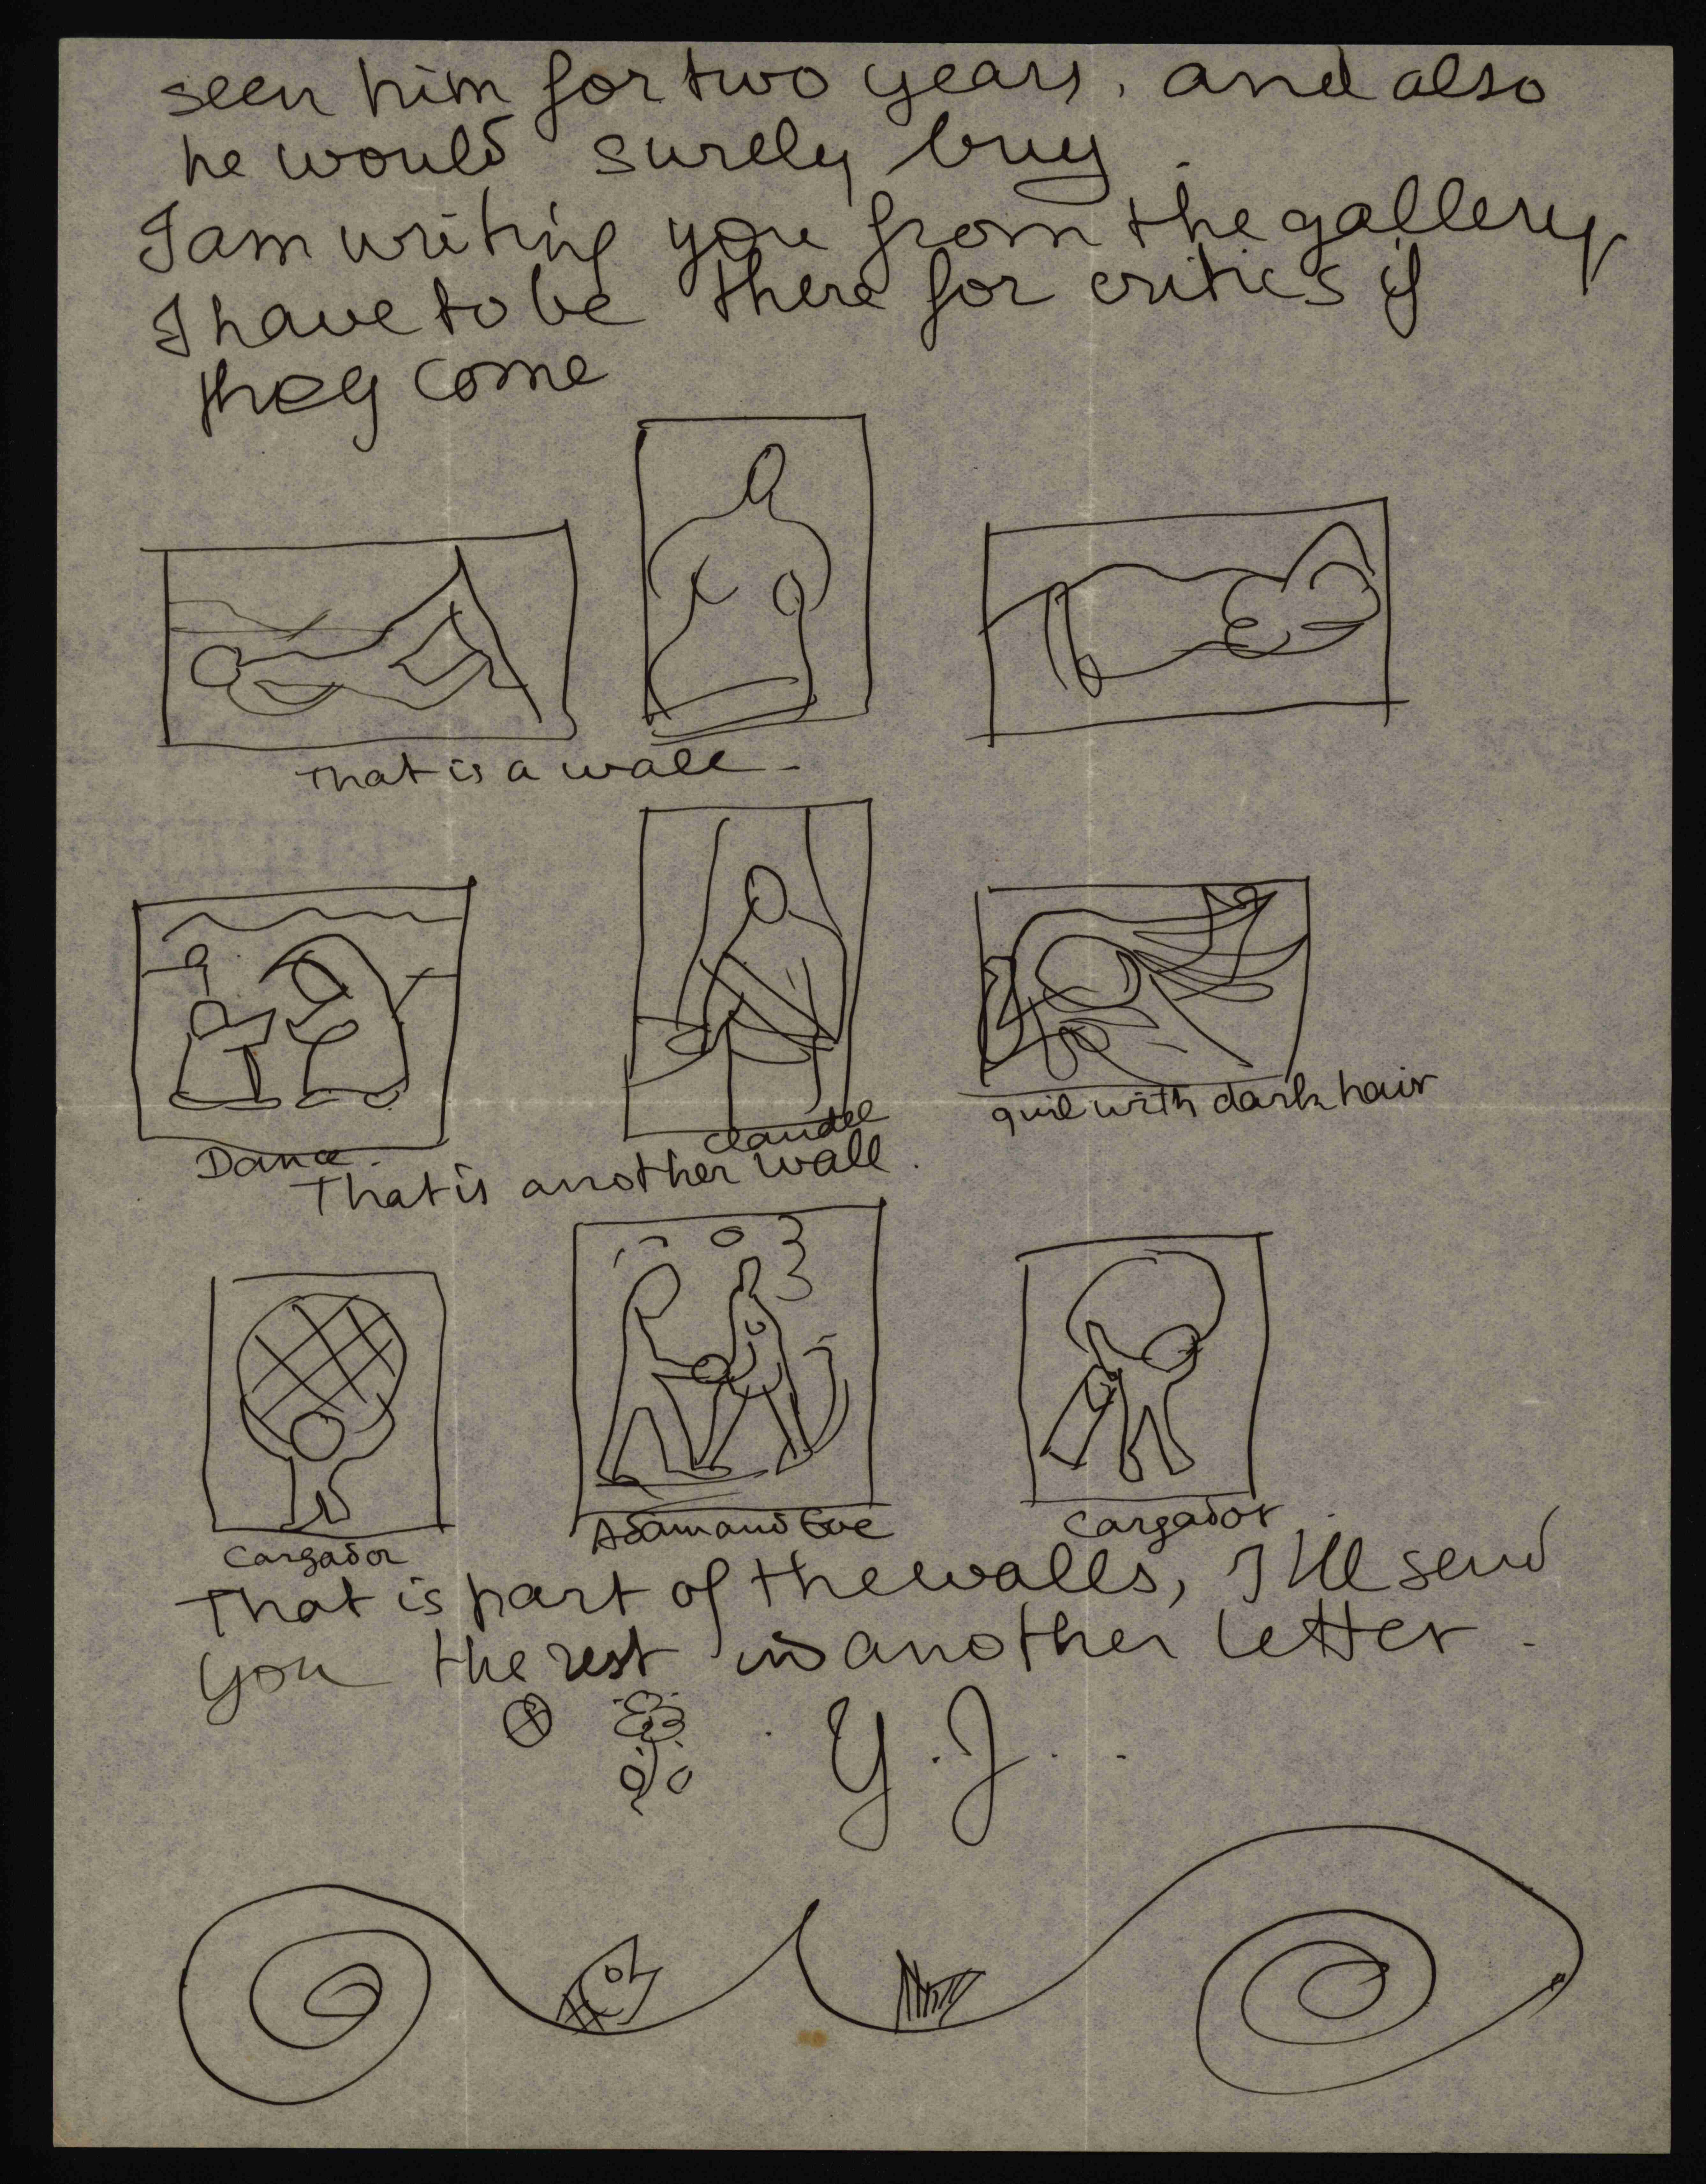 seen him for two years, and also
he would surely buy.
I am writing you from the gallery,
I have to be there for critics if
they come
That is a wall -
Dance.
Claudel
girl with dark hair
That is another wall.
Cargador
Adam and Eve
Cargador
That is part of the walls, I'll send
you the rest in another letter -
Y. J. . .